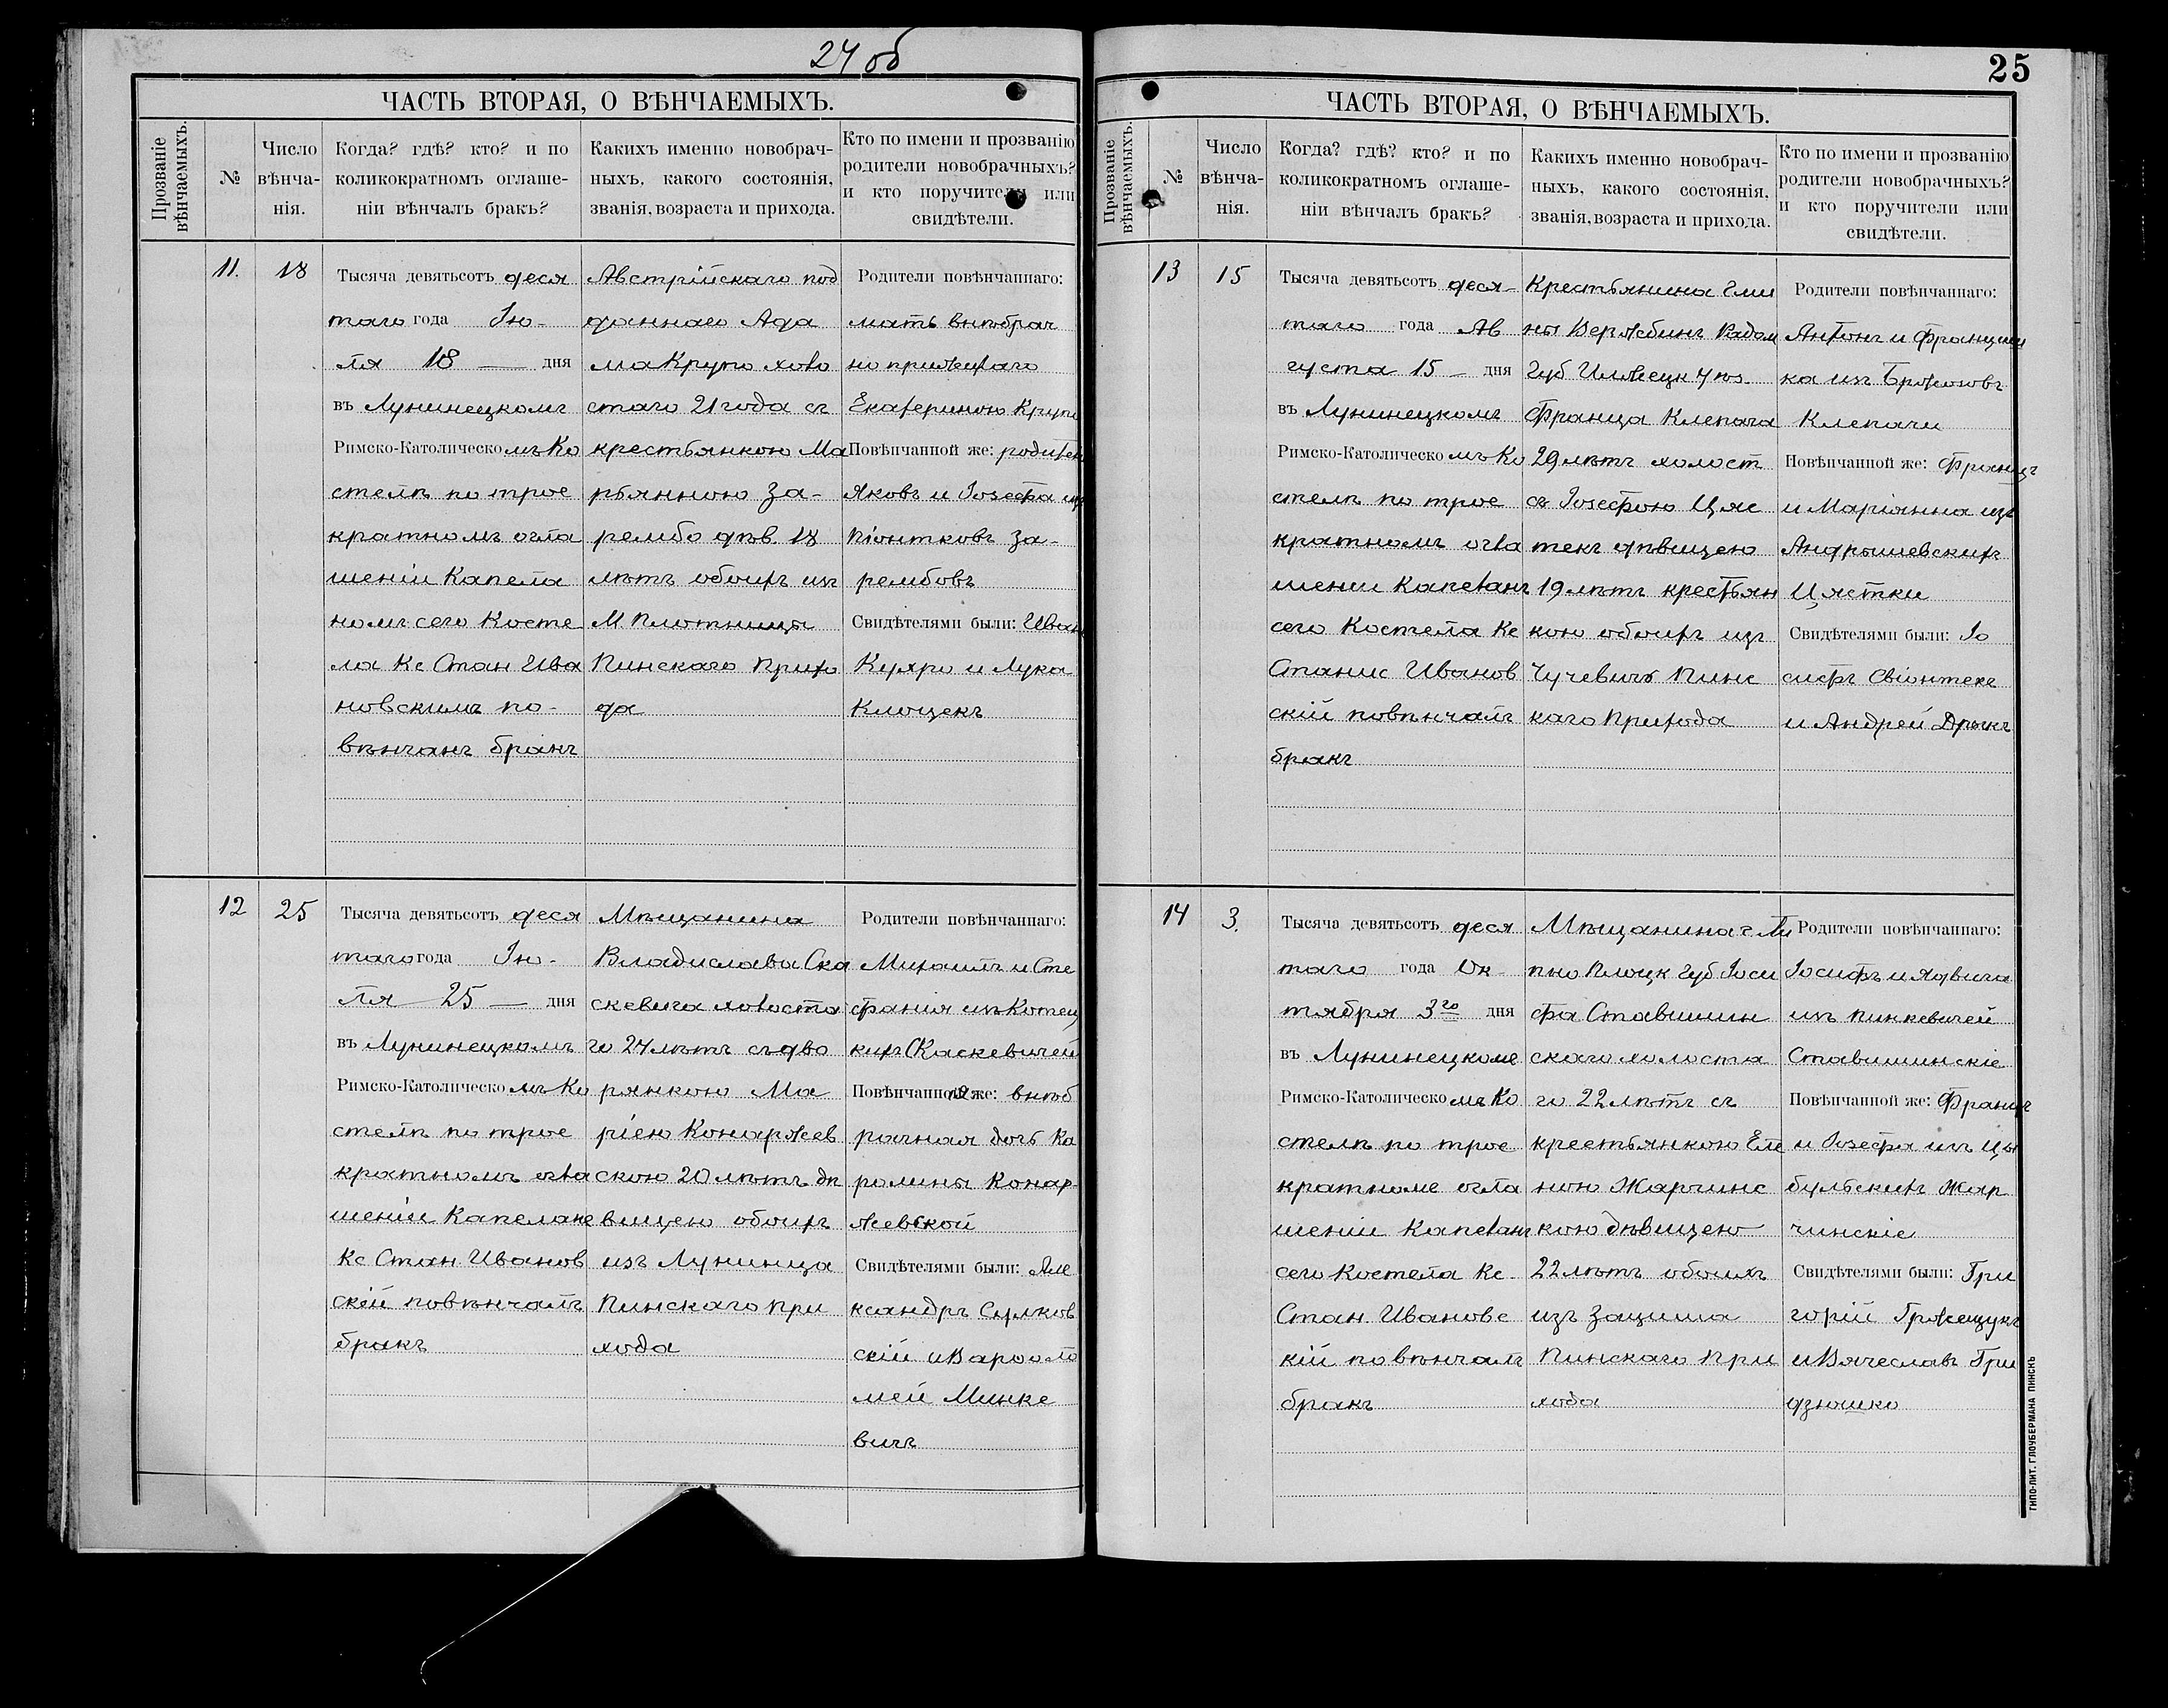 24 об
ЧАСТЬ ВТОРАЯ, О ВѢНЧАЕМЫХЪ.
Прозваніе вѣнчаемыхъ.
№
Число вѣнча-
нія.
Когда? гдѣ? кто? и по
коликократномъ оглаше-
ніи вѣнчалъ бракъ?
Какихъ именно новобрач-
ныхъ, какого состоянія,
званія, возраста и прихода.
Кто по имени и прозванію
родители новобрачныхъ?
и кто поручители или
свидѣтели.
11.
18
Тысяча девятьсотъ деся
таго года Ію-
ля 18 — дня
въ Лунинецкомъ
Римско-Католическо мъ Ко
стелѣ по трое
кратномъ огла
шеніи Капела
номъ сего Косте
ла Кс Стан Ива
новскимъ по-
вѣнчанъ бракъ
Австрійскаго под
даннаго Ада
ма Крупо холо
стаго 21 года съ
крестьянкою Ма
рьянною За-
рембо дѣв. 18
лѣтъ обоихъ изъ
М Плотницы
Пинскаго Прихо
да
Родители повѣнчаннаго:
мать внѣбрач
но прижитаго
Екатериною Крупо
Повѣнчанной же: родители
Яковъ и Іозефа изъ
Піонтковъ За-
рембовъ
Свидѣтелями были: Иван
Куяро и Лука
Клоцекъ
12
25
Тысяча девятьсотъ деся
таго года Ію-
ля — 25 — дня
въ Лунинецкомъ
Римско-Католическо мъ Ко
стелѣ по трое
кратномъ огла
шеніи Капеланъ
Кс Стан Иванов
скій повѣнчалъ
бракъ
Мѣщанина
Владислава Ска
скевича холоста
го 24 лѣтъ съ дво
рянкою Ма
ріею Конаржев
скою 20 лѣтъ дѣ
вицею обоихъ
изъ Лунинца
Пинскаго При
хода
Родители повѣнчаннаго:
Михаилъ и Сте
фанія изъ Котец
кихъ Скаскевичей
Повѣнчанной же: внѣб
рачная дочь Ка
ролины Конар-
жевской
Свидѣтелями были: Але
ксандръ Сулков
скій и Варфоло
мей Минке
вичъ
25
ЧАСТЬ ВТОРАЯ, О ВѢНЧАЕМЫХЪ.
Прозваніе вѣнчаемыхъ.
№
Число вѣнча-
нія.
Когда? гдѣ? кто? и по
коликократномъ оглаше-
ніи вѣнчалъ бракъ?
Какихъ именно новобрач-
ныхъ, какого состоянія,
званія, возраста и прихода.
Кто по имени и прозванію
родители новобрачныхъ?
и кто поручители или
свидѣтели.
13
15
Тысяча девятьсотъ деся-
таго года Ав
густа 15 — дня
въ Лунинецкомъ
Римско-Католическо мъ Ко
стелѣ по трое
кратномъ огла
шеніи Капеланъ
сего Костела Кс
Станис Иванов
скій повѣнчалъ
бракъ
Крестьянина Гми
ны Вержбинъ Радом
Губ Илжецк у ѣз
Франца Клепача
29 лѣтъ холост
съ Іозефою Цяс
текъ дѣвицею
19 лѣтъ крестьян
кою обоихъ изъ
Чучевичъ Пинс
каго Прихода
Родители повѣнчаннаго:
Антонъ и Францишк
ка изъ Бржозовъ
Клепачи
Повѣнчанной же: Францъ
и Маріянна изъ
Андрышевскихъ
Цястки
Свидѣтелями были: Іо
сифъ Свіонтекъ
и Андрей Дрыкъ
14
3.
Тысяча девятьсотъ деся
таго года Ок
тября 3го дня
въ Лунинецкомъ
Римско-Католическо мъ Ко
стелѣ по трое
кратномъ огла
шеніи Капеланъ
сего Костела Кс.
Стан. Ивановс
кій повѣнчалъ
бракъ
Мѣщанина г. Ли
пно Плоцк Губ Іоси
фа Ставишин
скаго холоста
го 22 лѣтъ съ
крестьянкою Еле
ною Жарчинс
кою дѣвицею
22 лѣтъ обоихъ
изъ Зацишa
Пинскаго При
хода
Родители повѣнчаннаго:
Іосифъ и Ядвига
изъ Пинкевичей
Ставишинскіе
Повѣнчанной же: Францъ
и Іозефа изъ Цы
бульскихъ Жар
чинскіе
Свидѣтелями были: Гри
горій Гржещукъ
и Вячеславъ Гри
дзюшко
ТИПО-ЛИТ. ГЛОУБЕРМАНА ПИНСКЪ